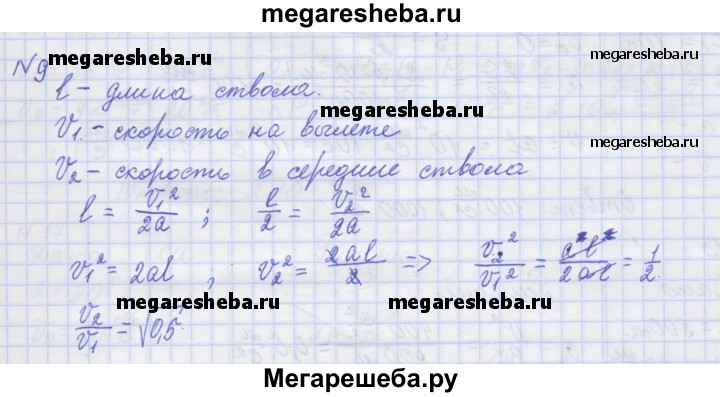 megaresheba.ru
N9
megaresheba.ru
megaresheba.ru
l – длина ствола.
megaresheba.ru
V₁. – скорость на вылете
megaresheba.ru
V₂ – скорость в середине ствола
l = V₁²/2a ; l/2 = V₂²/2a
V₁² = 2al , V₂² = 2al/2 => V₂²/V₁² = /2al = 1/2.
megaresheba.ru
megaresheba.ru
V₂/V₁ = √0,5
Мегарешеба.ру